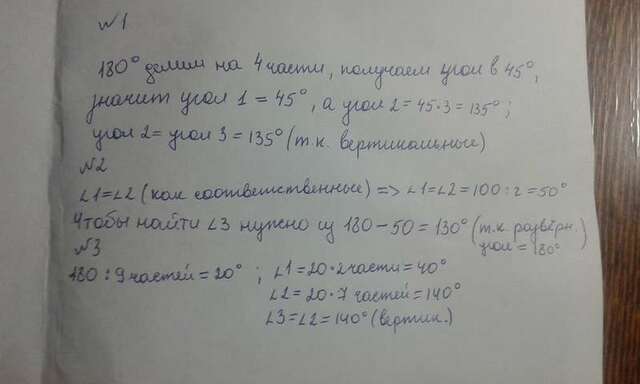 №1
180° делим на 4 части, получаем угол в 45°,
значит угол 1 = 45°, а угол 2 = 45·3 = 135°;
угол 2 = угол 3 = 135° (т.к. вертикальные)
№2
∠1=∠2 (как соответственные) => ∠1=∠2=100:2=50°
Чтобы найти ∠3 нужно из 180-50=130° (т.к. развёрн.
угол = 180°)
№3
180:9 частей = 20° ; ∠1=20·2части=40°
∠2=20·7 частей=140°
∠3=∠2=140° (вертик.)